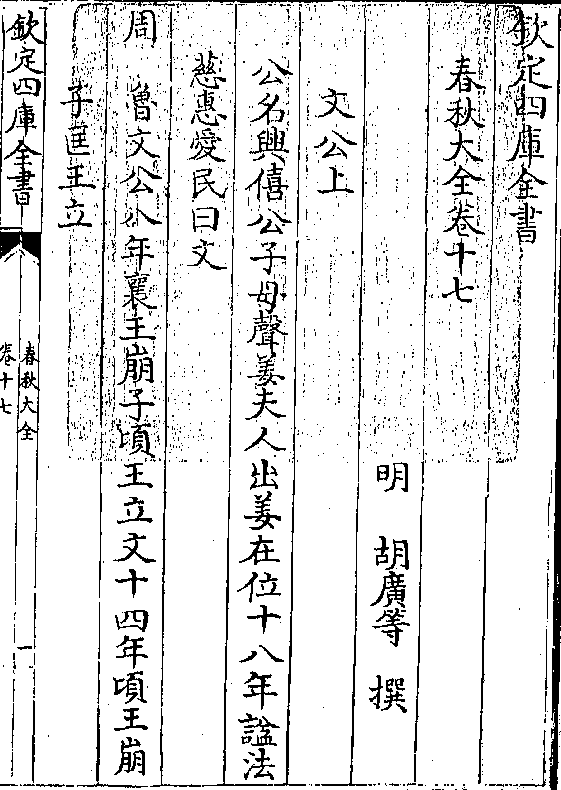 欽定四庫全書
春秋大全卷十七
明 胡廣等 撰
文公上
公名興僖公子母聲姜夫人出姜在位十八年諡法
慈惠愛民曰文
周 魯文公八年襄王崩子頃王立文十四年頃王崩
子匡王立
欽定四庫全書
春秋大全
卷十七
一